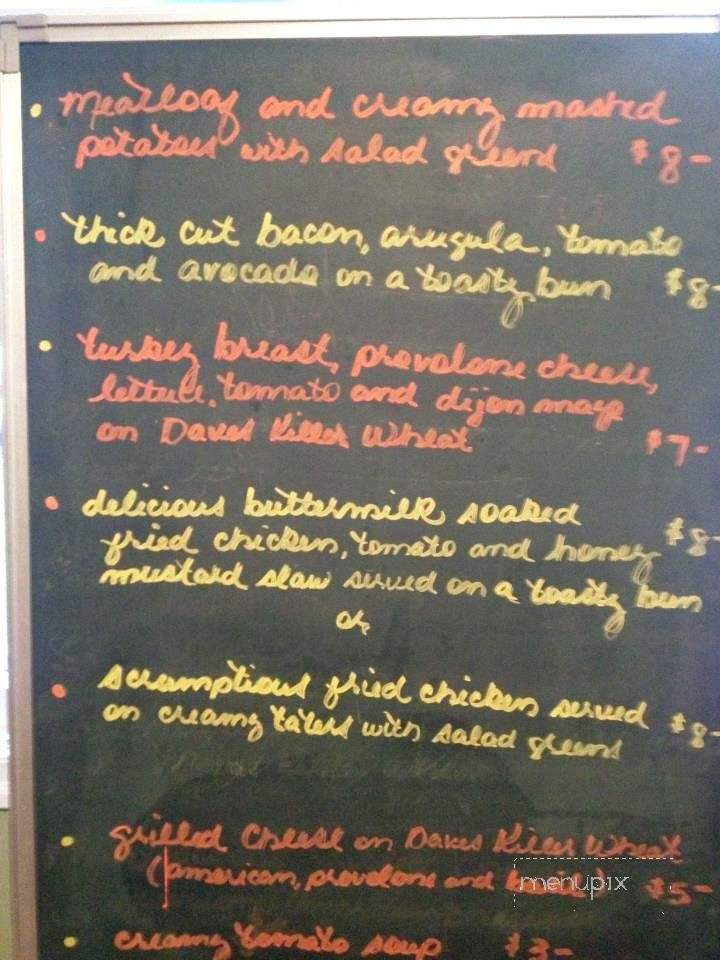 meatloaf and creamy mashed
potatoes with salad greens $8-
thick cut bacon, arugula, tomato
and avocado on a toasty bun $8-
turkey breast, provolone cheese,
lettuce, tomato and dijon mayo
on Daves Killer Wheat $7-
delicious buttermilk soaked
fried chicken, tomato and honey $8-
mustard slaw served on a toasty bun
or
scrumptious fried chicken served
on creamy taters with salad greens $8-
grilled Cheese on Daves Killer Wheat
(american, provolone and $5-
menupix
creamy tomato soup $3-